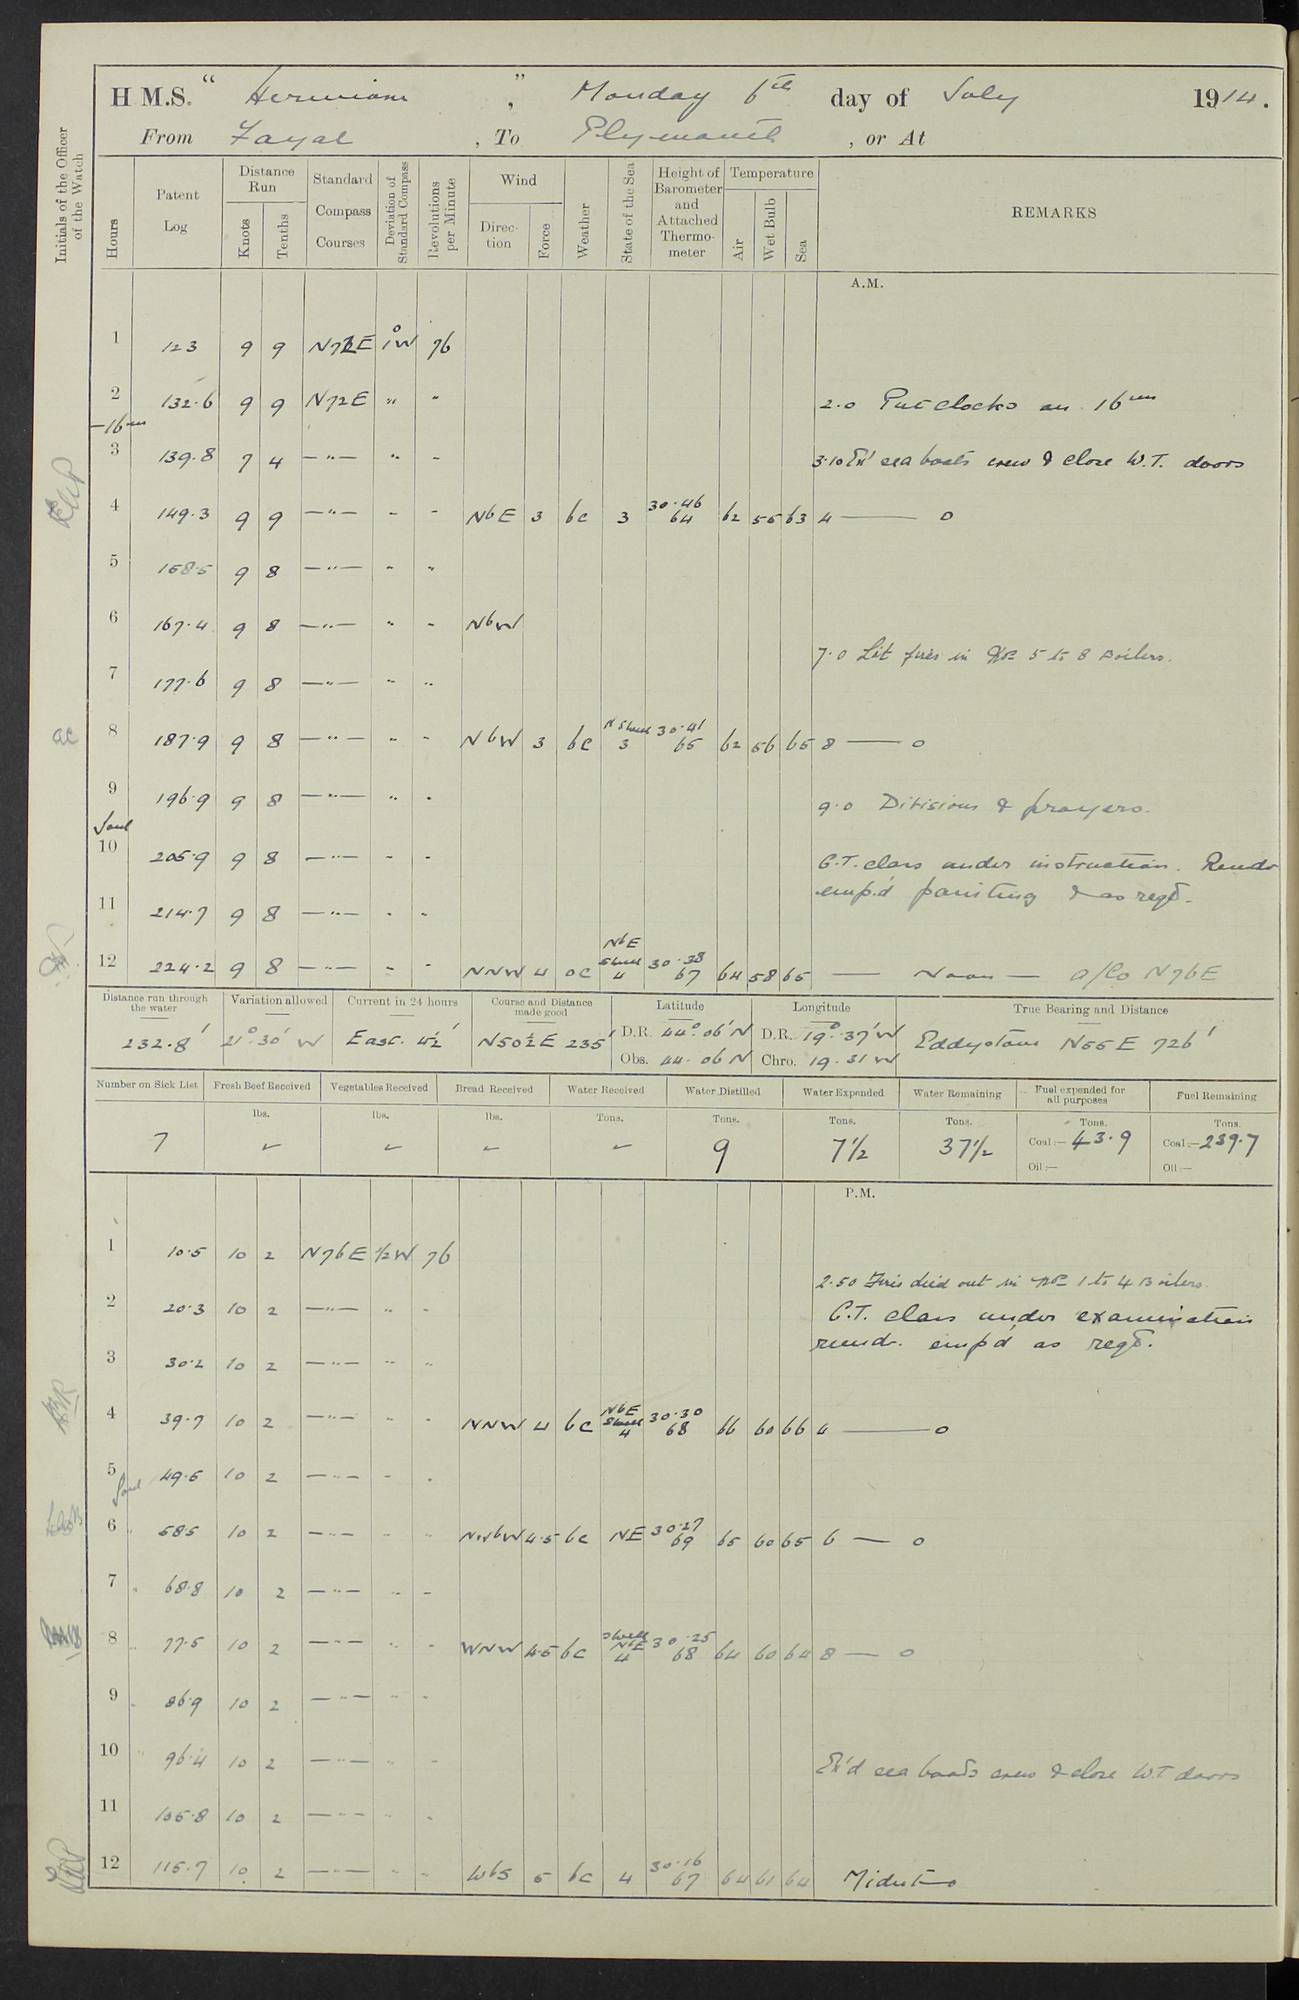 H M.S. " Hermione " , Monday 6th day of July 1914.
From Fayal , To Plymouth , or At
Initials of the Officer of the Watch
Hours
Patent Log
Distance Run
Knots
Tenths
Standard Compass Courses
Deviation of Standard Compass
Revolutions per Minute
Wind
Direction
Force
Weather
State of the Sea
Height of Barometer and Attached Thermometer
Temperature
Air
Wet Bulb
Sea
REMARKS
A.M.
1 123 9 9 N72E 1°W 76
2 132.6 9 9 N72E " " 2.0 Put clocks on 16m
-16m
3 139.8 7 4 —"— " " 3.10 Ex'd sea boats crew & close W.T. doors
4 149.3 9 9 —"— " " NbE 3 bc 3 30.46 64 62 55 63 4 —— 0
5 158.5 9 8 —"— " "
6 167.4 9 8 —"— " " NbW
7.0 Lit fires in Nos 5 to 8 Boilers.
7 177.6 9 8 —"— " "
8 187.9 9 8 —"— " " NbW 3 bc N Swell 3 30.41 65 62 56 65 8 —— 0
9 196.9 9 8 —"— " " 9.0 Divisions & prayers.
10 205.9 9 8 —"— " " G.T. class under instruction. Remdr
11 214.7 9 8 —"— " " emp'd painting & as reqd.
12 224.2 9 8 —"— " " NNW 4 oc NbE Swell 4 30.38 67 64 58 65 —— Noon — a/Co N76E
Distance run through the water
232.8'
Variation allowed
21° 30' W
Current in 24 hours
East. 4½'
Course and Distance made good
N50½E 235'
Latitude
D.R. 44° 06' N
Obs. 44. 06 N
Longitude
D.R. 19° 37' W
Chro. 19. 31 W
True Bearing and Distance
Eddystone N66E 726'
Number on Sick List
7
Fresh Beef Received
lbs.
Vegetables Received
lbs.
Bread Received
lbs.
Water Received
Tons.
Water Distilled
Tons.
9
Water Expended
Tons.
7½
Water Remaining
Tons.
37½
Fuel expended for all purposes
Tons.
Coal:— 43.9
Oil:—
Fuel Remaining
Tons.
Coal:— 239.7
Oil:—
P.M.
1 10.5 10 2 N76E ½W 76
2.50 Fires died out in Nos 1 to 4 Boilers.
2 20.3 10 2 —"— " " G.T. class under examination
remdr. emp'd as reqd.
3 30.2 10 2 —"— " "
4 39.7 10 2 —"— " " NNW 4 bc NbE Swell 4 30.30 68 66 60 66 4 —— 0
5 49.5 10 2 —"— " "
6 58.5 10 2 —"— " " NWbW 4.5 bc NE 30.27 69 65 60 65 6 — 0
7 68.8 10 2 —"— " "
8 77.5 10 2 —"— " " WNW 4.5 bc Swell NbE 4 30.25 68 64 60 64 8 — 0
9 86.9 10 2 —"— " "
10 96.4 10 2 —"— " " Ex'd sea boats crew & close W.T doors
11 105.8 10 2 —"— " "
12 115.7 10 2 —"— " " WbS 5 bc 4 30.16 67 64 61 64 Midnt—0